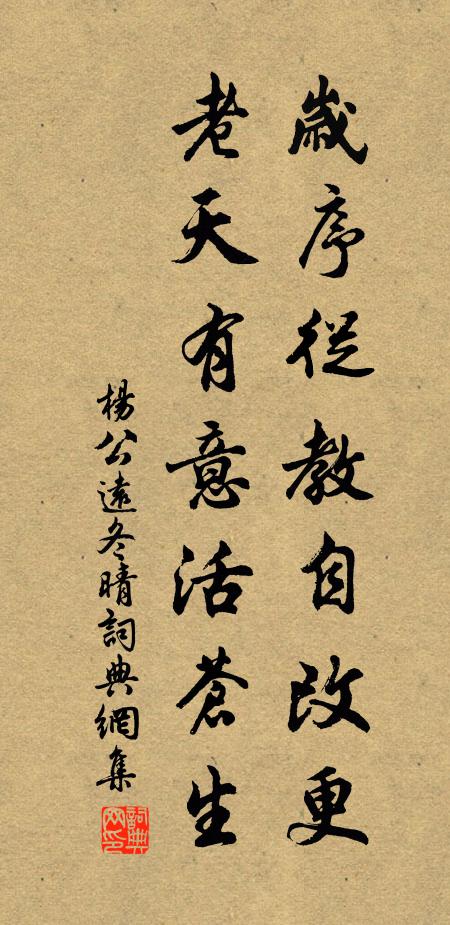 歲序從教自改更
老天有意活蒼生
楊公遠冬晴詞典網集
詞典網印